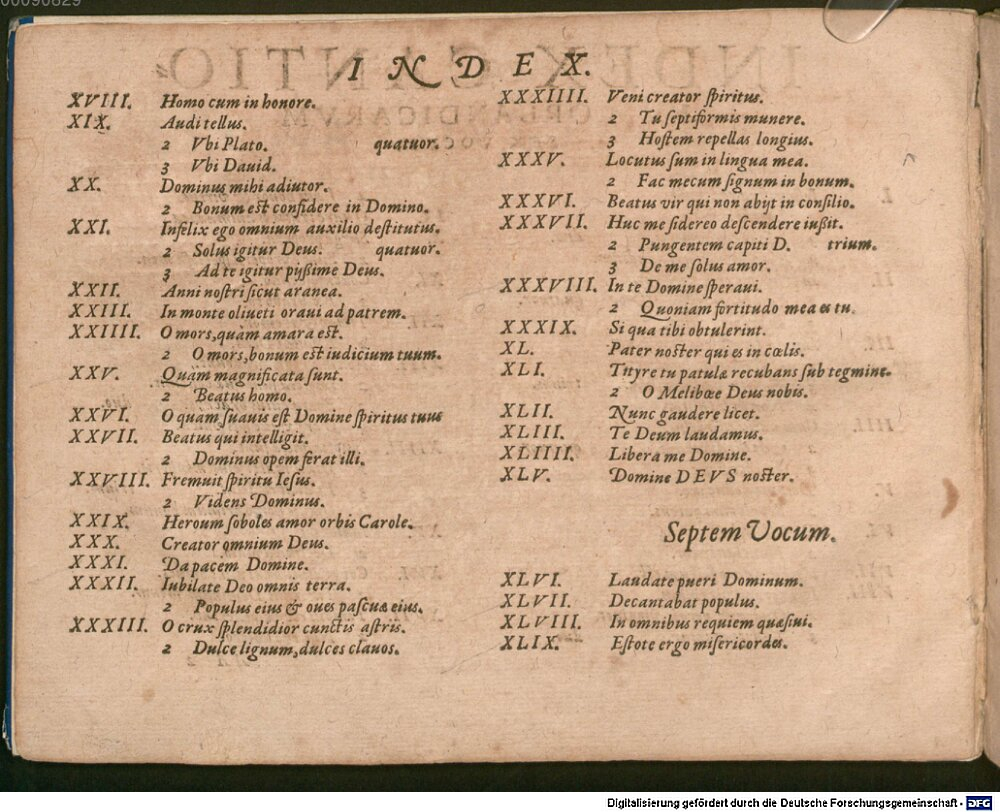 00090829
INDEX.
XVIII. Homo cum in honore.
XIX. Audi tellus.
2 Vbi Plato. quatuor.
3 Vbi Dauid.
XX. Dominus mihi adiutor.
2 Bonum est confidere in Domino.
XXI. Infelix ego omnium auxilio destitutus.
2 Solus igitur Deus. quatuor.
3 Ad te igitur pijßime Deus.
XXII. Anni nostri sicut aranea.
XXIII. In monte oliueti oraui ad patrem.
XXIIII. O mors, quàm amara est.
2 O mors, bonum est iudicium tuum.
XXV. Quàm magnificata sunt.
2 Beatus homo.
XXVI. O quàm suauis est Domine spiritus tuus
XXVII. Beatus qui intelligit.
2 Dominus opem ferat illi.
XXVIII. Fremuit spiritu Iesus.
2 Videns Dominus.
XXIX. Heroum soboles amor orbis Carole.
XXX. Creator omnium Deus.
XXXI. Da pacem Domine.
XXXII. Iubilate Deo omnis terra.
2 Populus eius & oues pascuæ eius.
XXXIII. O crux splendidior cunctis astris.
2 Dulce lignum, dulces clauos.
XXXIIII. Veni creator spiritus.
2 Tu septiformis munere.
3 Hostem repellas longius.
XXXV. Locutus sum in lingua mea.
2 Fac mecum signum in bonum.
XXXVI. Beatus vir qui non abijt in consilio.
XXXVII. Huc me sidereo descendere iußit.
2 Pungentem capiti D. trium.
3 De me solus amor.
XXXVIII. In te Domine speraui.
2 Quoniam fortitudo mea es tu.
XXXIX. Si qua tibi obtulerint.
XL. Pater noster qui es in cœlis.
XLI. Tityre tu patulæ recubans sub tegmine.
2 O Melibœe Deus nobis.
XLII. Nunc gaudere licet.
XLIII. Te Deum laudamus.
XLIIII. Libera me Domine.
XLV. Domine DEVS noster.
Septem Vocum.
XLVI. Laudate pueri Dominum.
XLVII. Decantabat populus.
XLVIII. In omnibus requiem quæsiui.
XLIX. Estote ergo misericordes.
Digitalisierung gefördert durch die Deutsche Forschungsgemeinschaft - DFG